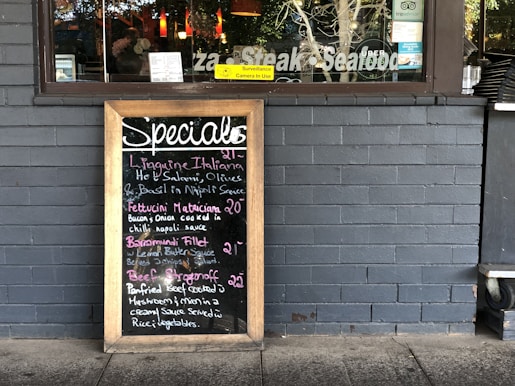 za • Steak • Seafood
Surveillance
Camera In Use
Specials
21-
Linguine Italiana
Hot Salami, Olives
& Basil in Napoli Sauce
Fettucini Matriciana 20-
Bacon & Onion cooked in
chilli napoli sauce
Barramundi Fillet 21-
w Lemon Butter Sauce
Served & chips & Salad.
Beef Stroganoff 22
Panfried Beef cooked in
Mushroom & onion in a
creamy Sauce Served w
Rice & Vegetables.